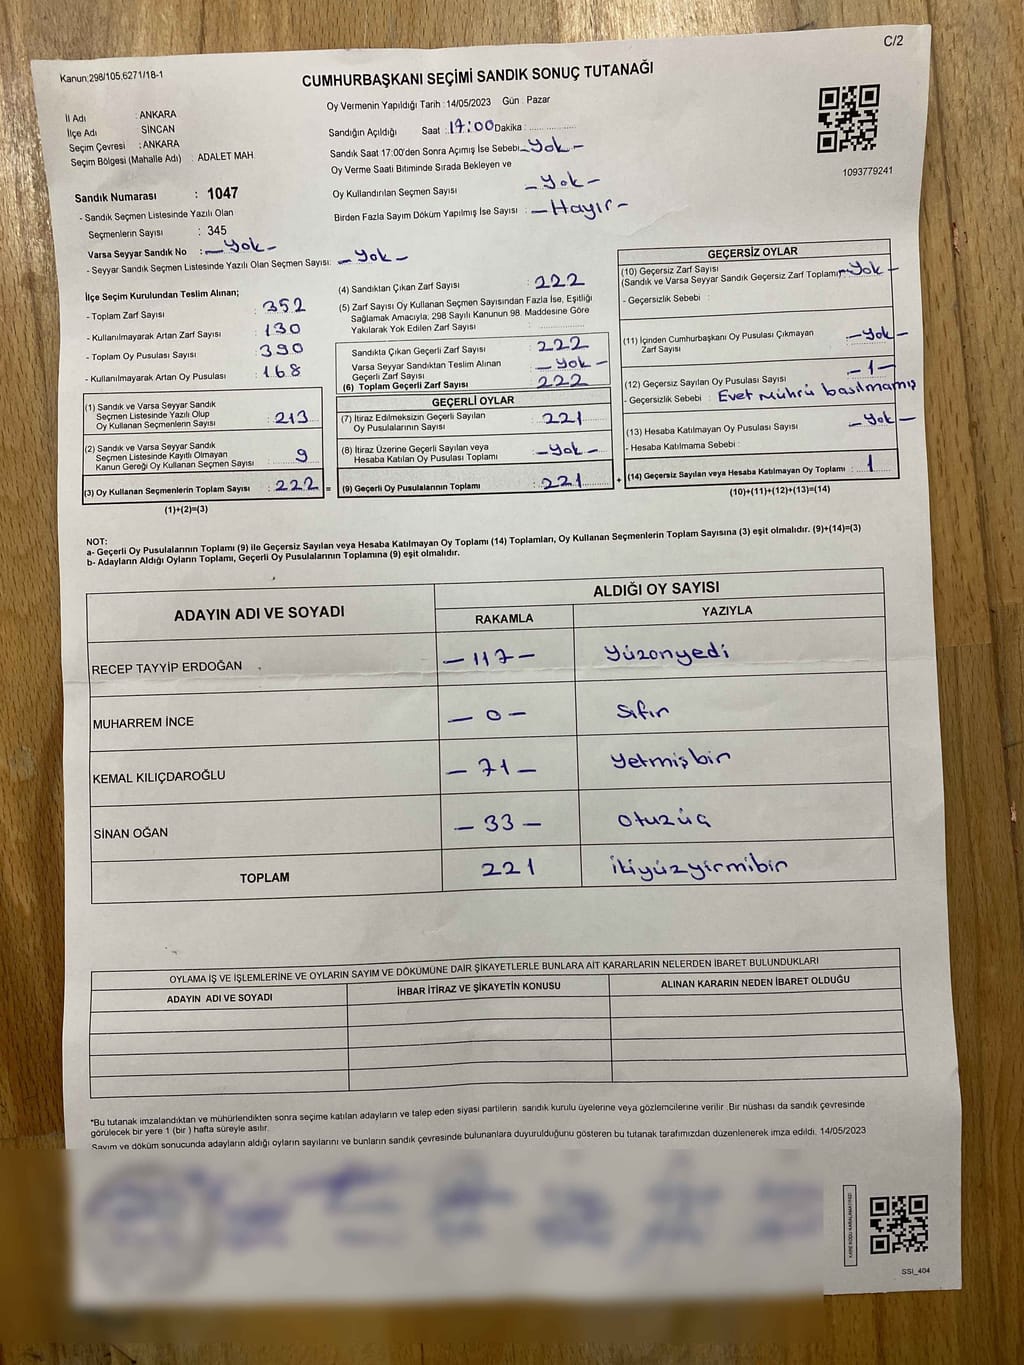 C/2
Kanun:298/105,6271/18-1
CUMHURBAŞKANI SEÇİMİ SANDIK SONUÇ TUTANAĞI
İl Adı : ANKARA
İlçe Adı SİNCAN
Seçim Çevresi : ANKARA
Seçim Bölgesi (Mahalle Adı) : ADALET MAH.
Oy Vermenin Yapıldığı Tarih : 14/05/2023 Gün : Pazar
Sandığın Açıldığı Saat : 17:00 Dakika :
Sandık Saat 17:00'den Sonra Açımış İse Sebebi - Yok -
Oy Verme Saati Bitiminde Sırada Bekleyen ve
Oy Kullandırılan Seçmen Sayısı - Yok -
Birden Fazla Sayım Döküm Yapılmış İse Sayısı : - Hayır -
1093779241
Sandık Numarası : 1047
- Sandık Seçmen Listesinde Yazılı Olan
Seçmenlerin Sayısı : 345
Varsa Seyyar Sandık No : - Yok -
- Seyyar Sandık Seçmen Listesinde Yazılı Olan Seçmen Sayısı: - Yok -
İlçe Seçim Kurulundan Teslim Alınan;
- Toplam Zarf Sayısı : 352
- Kullanılmayarak Artan Zarf Sayısı : 130
- Toplam Oy Pusulası Sayısı : 390
- Kullanılmayarak Artan Oy Pusulası : 168
(1) Sandık ve Varsa Seyyar Sandık
Seçmen Listesinde Yazılı Olup
Oy Kullanan Seçmenlerin Sayısı : 213
(2) Sandık ve Varsa Seyyar Sandık
Seçmen Listesinde Kayıtlı Olmayan
Kanun Gereği Oy Kullanan Seçmen Sayısı : 9
(3) Oy Kullanan Seçmenlerin Toplam Sayısı : 222 =
(1)+(2)=(3)
(4) Sandıktan Çıkan Zarf Sayısı : 222
(5) Zarf Sayısı Oy Kullanan Seçmen Sayısından Fazla İse, Eşitliği
Sağlamak Amacıyla; 298 Sayılı Kanunun 98. Maddesine Göre
Yakılarak Yok Edilen Zarf Sayısı :
Sandıkta Çıkan Geçerli Zarf Sayısı : 222
Varsa Seyyar Sandıktan Teslim Alınan
Geçerli Zarf Sayısı : - Yok -
(6) Toplam Geçerli Zarf Sayısı : 222
GEÇERLİ OYLAR
(7) İtiraz Edilmeksizin Geçerli Sayılan
Oy Pusulalarının Sayısı : 221
(8) İtiraz Üzerine Geçerli Sayılan veya
Hesaba Katılan Oy Pusulası Toplamı : - Yok -
(9) Geçerli Oy Pusulalarının Toplamı : 221 +
GEÇERSİZ OYLAR
(10) Geçersiz Zarf Sayısı
(Sandık ve Varsa Seyyar Sandık Geçersiz Zarf Toplamı) - Yok -
- Geçersizlik Sebebi :
(11) İçinden Cumhurbaşkanı Oy Pusulası Çıkmayan
Zarf Sayısı : - Yok -
(12) Geçersiz Sayılan Oy Pusulası Sayısı : - 1 -
- Geçersizlik Sebebi : Evet Mührü basılmamış
(13) Hesaba Katılmayan Oy Pusulası Sayısı : - Yok -
- Hesaba Katılmama Sebebi :
(14) Geçersiz Sayılan veya Hesaba Katılmayan Oy Toplamı : 1
(10)+(11)+(12)+(13)=(14)
NOT:
a- Geçerli Oy Pusulalarının Toplamı (9) ile Geçersiz Sayılan veya Hesaba Katılmayan Oy Toplamı (14) Toplamları, Oy Kullanan Seçmenlerin Toplam Sayısına (3) eşit olmalıdır. (9)+(14)=(3)
b- Adayların Aldığı Oyların Toplamı, Geçerli Oy Pusulalarının Toplamına (9) eşit olmalıdır.
ADAYIN ADI VE SOYADI
ALDIĞI OY SAYISI
RAKAMLA YAZIYLA
RECEP TAYYİP ERDOĞAN - 117 - Yüzonyedi
MUHARREM İNCE - 0 - Sıfır
KEMAL KILIÇDAROĞLU - 71 - Yetmişbir
SİNAN OĞAN - 33 - Otuzüç
TOPLAM 221 İkiyüzyirmibir
OYLAMA İŞ VE İŞLEMLERİNE VE OYLARIN SAYIM VE DÖKÜMÜNE DAİR ŞİKAYETLERLE BUNLARA AİT KARARLARIN NELERDEN İBARET BULUNDUKLARI
ADAYIN ADI VE SOYADI İHBAR İTİRAZ VE ŞİKAYETİN KONUSU ALINAN KARARIN NEDEN İBARET OLDUĞU
*Bu tutanak imzalandıktan ve mühürlendikten sonra seçime katılan adayların ve talep eden siyasi partilerin sandık kurulu üyelerine veya gözlemcilerine verilir .Bir nüshası da sandık çevresinde
görülecek bir yere 1 (bir ) hafta süreyle asılır.
Sayım ve döküm sonucunda adayların aldığı oyların sayılarını ve bunların sandık çevresinde bulunanlara duyurulduğunu gösteren bu tutanak tarafımızdan düzenlenerek imza edildi. 14/05/2023
KARE KODU KARALAMAYINIZ!
SSI_404